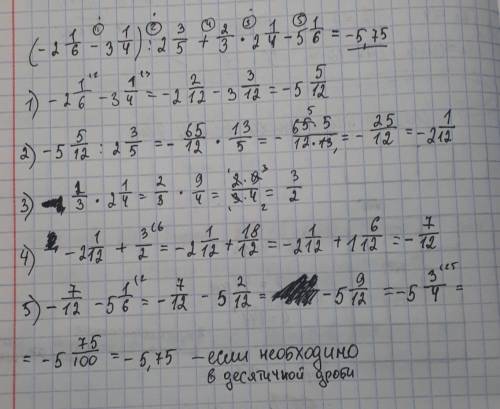 ① ② ④ ③ ⑤
(-2 1/6 - 3 1/4) : 2 3/5 + 2/3 · 2 1/4 - 5 1/6 = -5,75
1) -2 1/6 (2 - 3 1/4 (3 = -2 2/12 - 3 3/12 = -5 5/12
2) -5 5/12 : 2 3/5 = -65/12 · 13/5 = -65·5/12·13 = -25/12 = -2 1/12
3) 2/3 · 2 1/4 = 2/3 · 9/4 = 2·9/3·4 = 3/2
4) -2 1/12 + 3/2 (6 = -2 1/12 + 18/12 = -2 1/12 + 1 6/12 = -7/12
5) -7/12 - 5 1/6 (2 = -7/12 - 5 2/12 = -5 9/12 = -5 3/4 (25 =
= -5 75/100 = -5,75 - если необходимо
в десятичной дроби